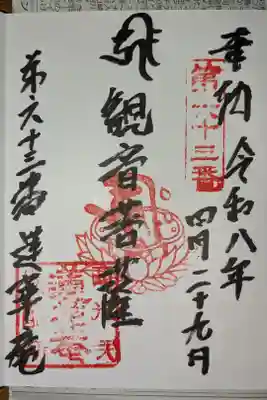 奉納 令和八年
四月二十九日
第六十三番
観音菩薩
第六十三番 蓮華庵